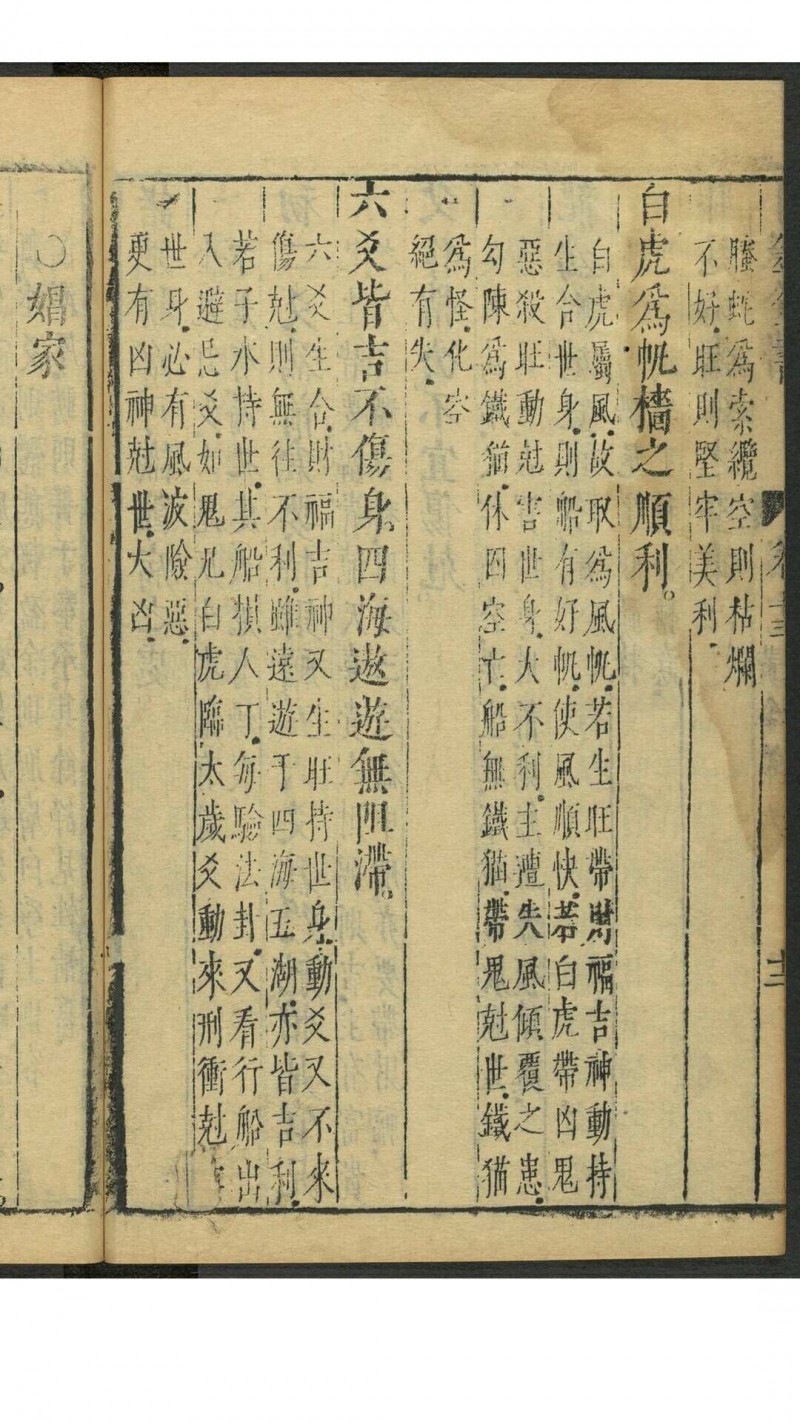 卷十三
十二
螣蛇爲索纜空則枯爛
不好旺則堅牢美利
白虎爲帆檣之順利。
白虎屬風故取爲風帆若生旺帶財福吉神動持
生合世身則船有好帆使風順快若白虎帶凶鬼
惡殺旺動尅害世身大不利主遭失風傾覆之患
勾陳爲鐵猫休囚空亡船無鐵猫帶鬼尅世鐵猫
爲怪化空
絕有失
六爻皆吉不傷身四海遨遊無阻滯。
六爻生合財福吉神又生旺持世身動爻又不來
傷尅則無往不利雖遠遊于四海五湖亦皆吉利
若子水持世其船損人丁每驗法卦又看行船出
入避忌爻如鬼兄白虎臨太歲爻動來刑衝尅
世身必有風波險惡
更有凶神尅世大凶
○娼家